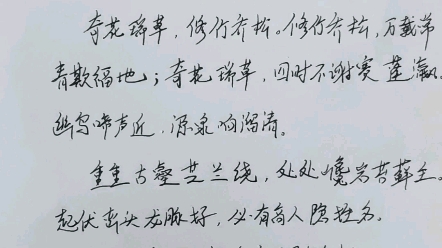 奇花瑞草，修竹乔松。修竹乔松，万载常
青欺福地；奇花瑞草，四时不谢赛蓬瀛。
幽鸟啼声近，源泉响溜清。
重重古壑芝兰绕，处处巉岩苔藓生。
起伏峦头龙脉好，必有高人隐姓名。